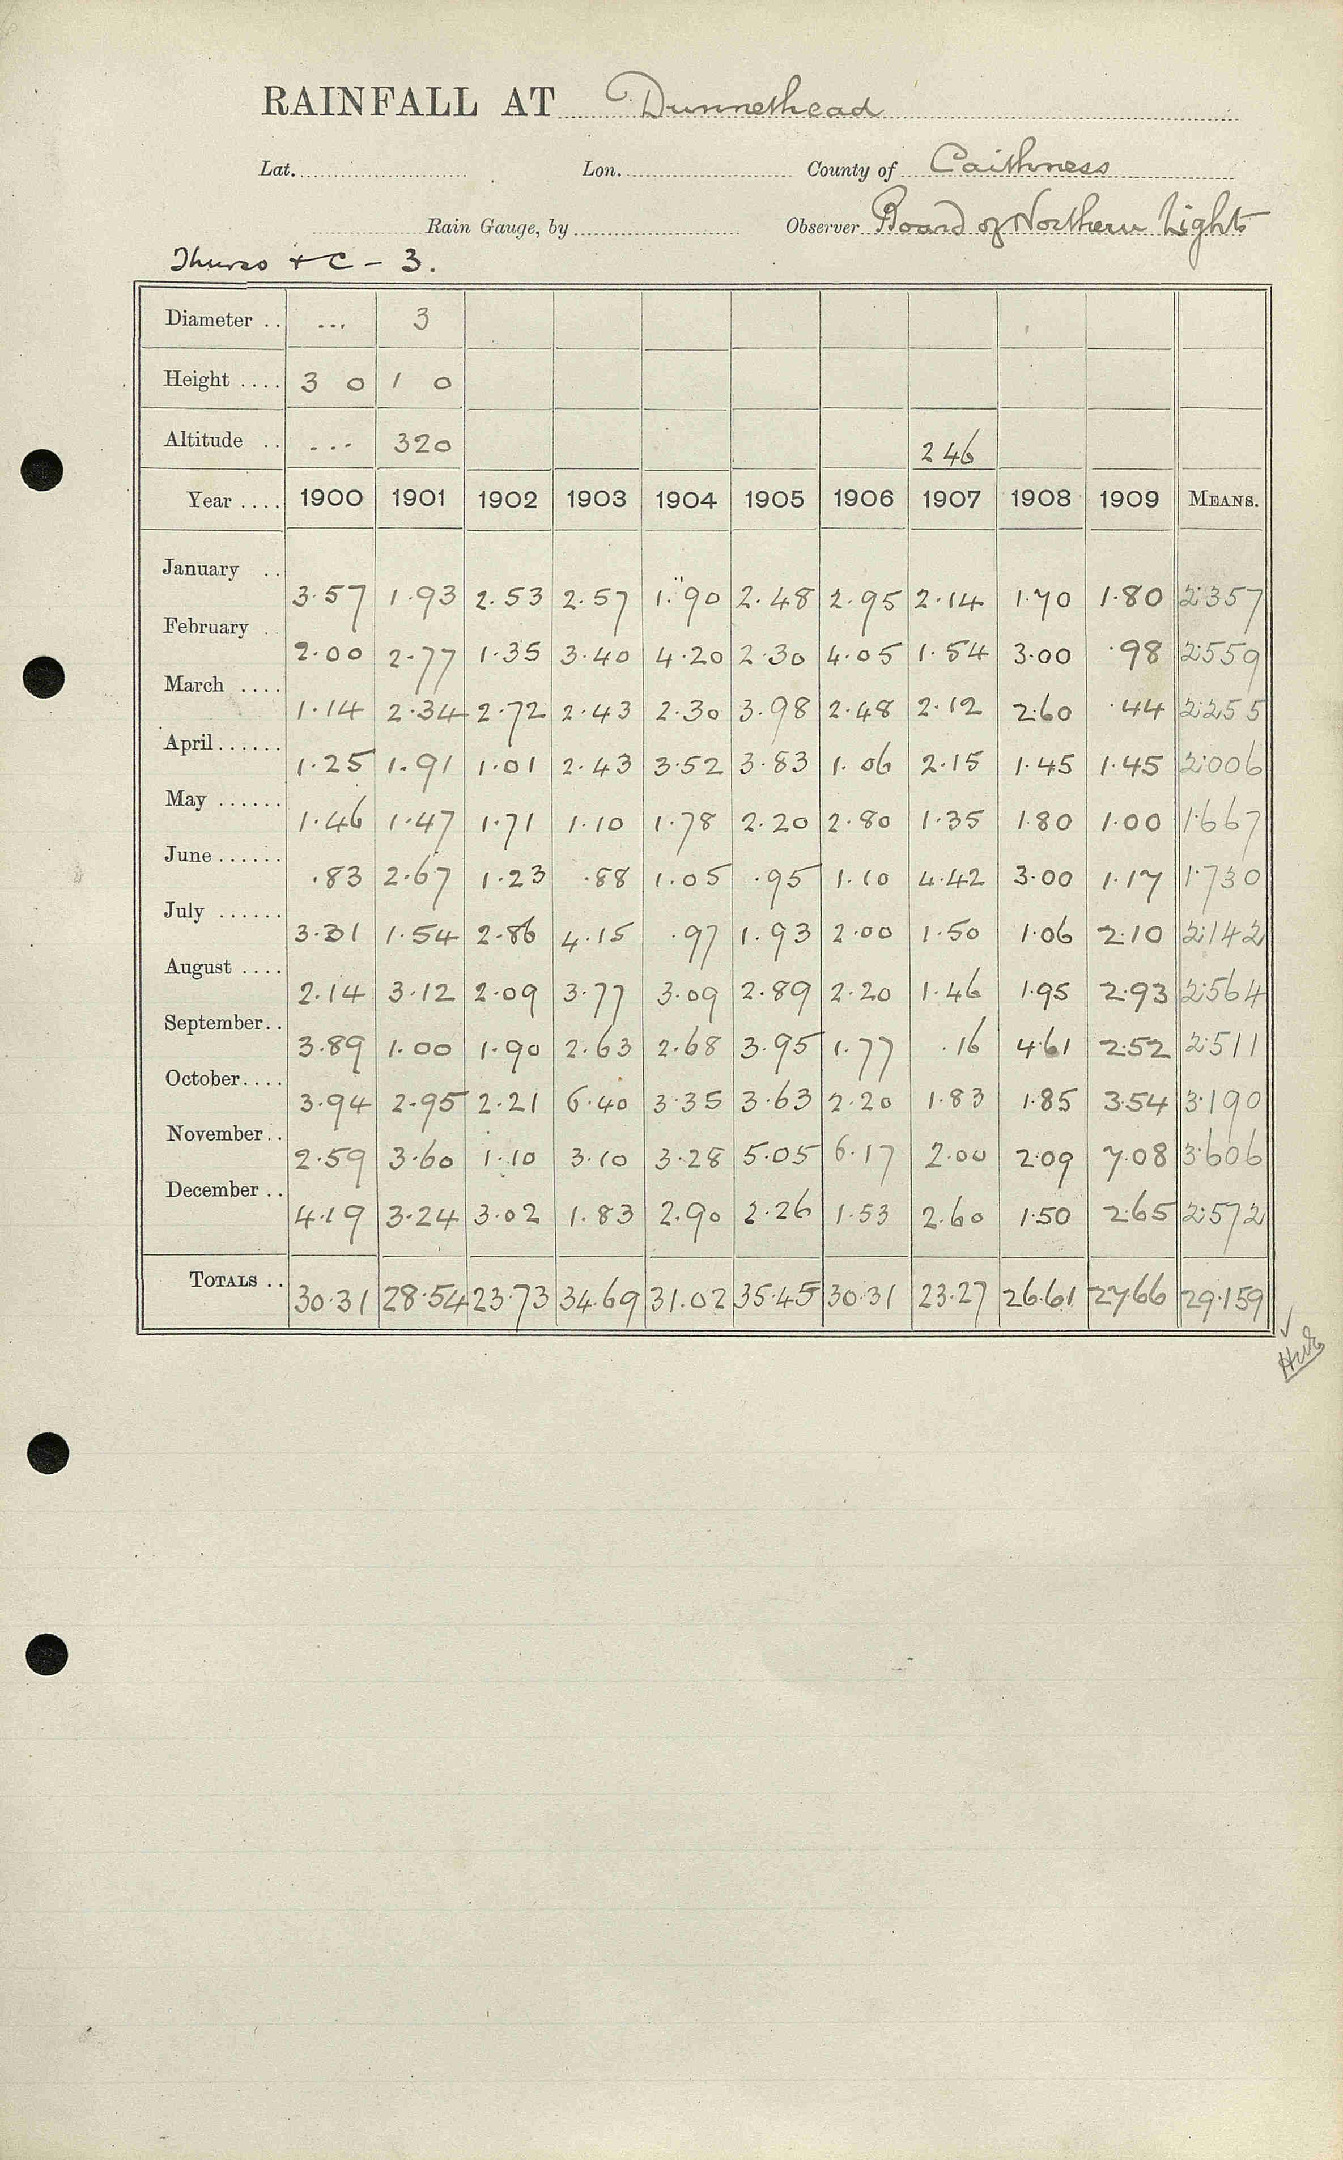 RAINFALL AT Dunnethead
Lat. Lon. County of Caithness
Rain Gauge, by Observer Board of Northern Lights
Thurso + C - 3.
Diameter .. ... 3
Height .... 3 0 1 0
Altitude .. ... 320 246
Year .... 1900 1901 1902 1903 1904 1905 1906 1907 1908 1909 MEANS.
January .. 3.57 1.93 2.53 2.57 1.90 2.48 2.95 2.14 1.70 1.80 2.357
February . 2.00 2.77 1.35 3.40 4.20 2.30 4.05 1.54 3.00 .98 2.559
March .... 1.14 2.34 2.72 2.43 2.30 3.98 2.48 2.12 2.60 .44 2.255
April...... 1.25 1.91 1.01 2.43 3.52 3.83 1.06 2.15 1.45 1.45 2.006
May ...... 1.46 1.47 1.71 1.10 1.78 2.20 2.80 1.35 1.80 1.00 1.667
June...... .83 2.67 1.23 .88 1.05 .95 1.10 4.42 3.00 1.17 1.730
July ...... 3.31 1.54 2.86 4.15 .97 1.93 2.00 1.50 1.06 2.10 2.142
August .... 2.14 3.12 2.09 3.77 3.09 2.89 2.20 1.46 1.95 2.93 2.564
September.. 3.89 1.00 1.90 2.63 2.68 3.95 1.77 .16 4.61 2.52 2.511
October.... 3.94 2.95 2.21 6.40 3.35 3.63 2.20 1.83 1.85 3.54 3.190
November.. 2.59 3.60 1.10 3.10 3.28 5.05 6.17 2.00 2.09 7.08 3.606
December .. 4.19 3.24 3.02 1.83 2.90 2.26 1.53 2.60 1.50 2.65 2.572
TOTALS .. 30.31 28.54 23.73 34.69 31.02 35.45 30.31 23.27 26.61 27.66 29.159